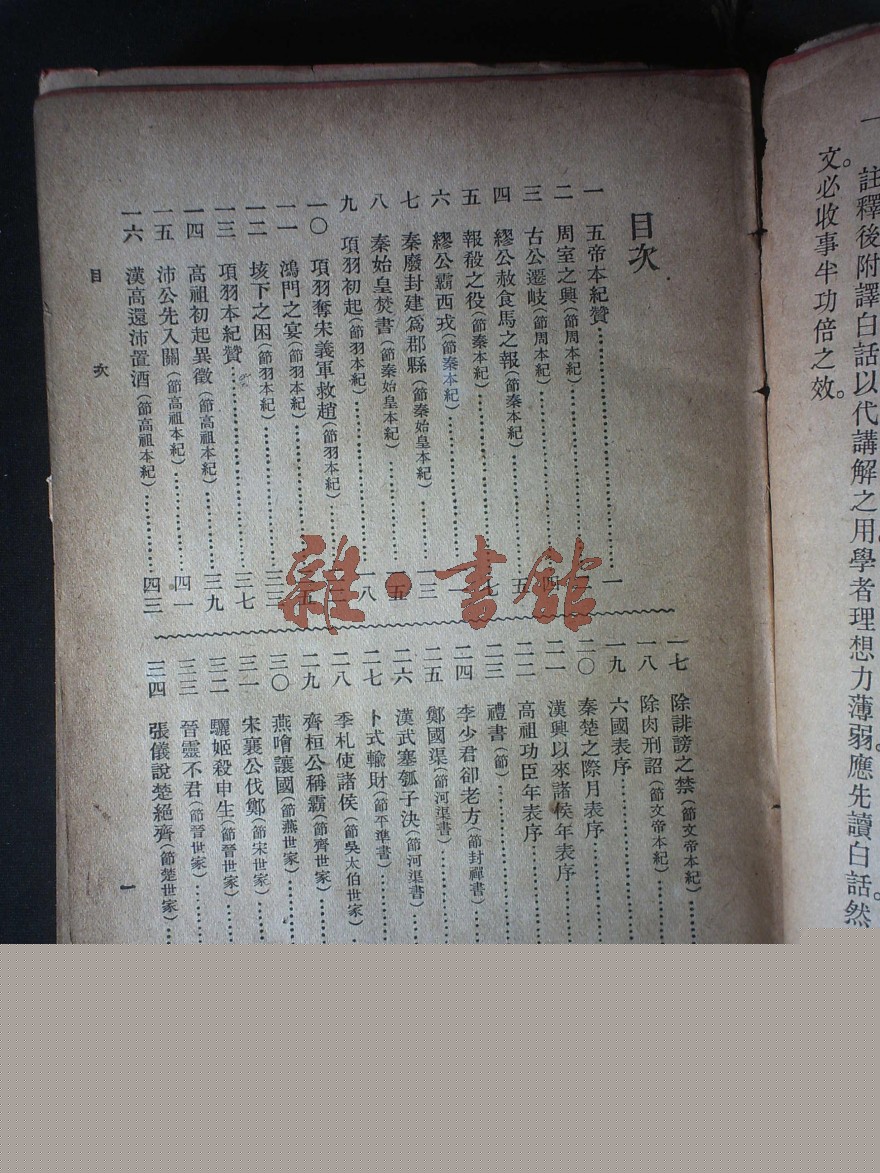 一 註釋後附譯白話以代講解之用學者理想力薄弱。應先讀白話然
文必收事半功倍之效。
目次
一 五帝本紀贊……………………一
二 周室之興(節周本紀)……………
三 古公遷岐(節周本紀)……………四
四 繆公赦食馬之報(節秦本紀)………五
五 報殺之役(節秦本紀)……………七
六 繆公霸西戎(節秦本紀)…………
七 秦廢封建爲郡縣(節秦始皇本紀)……一三
八 秦始皇焚書(節秦始皇本紀)………五
九 項羽初起(節羽本紀)……………一八
一〇 項羽奪宋義軍救趙(節羽本紀)……
一一 鴻門之宴(節羽本紀)…………五
一二 垓下之困(節羽本紀)…………三三
一三 項羽本紀贊…………………三七
一四 高祖初起異徵(節高祖本紀)……三九
一五 沛公先入關(節高祖本紀)………四一
一六 漢高還沛置酒(節高祖本紀)……四三
一七 除誹謗之禁(節文帝本紀)……
一八 除肉刑詔(節文帝本紀)……
一九 六國表序……
二〇 秦楚之際月表序……
二一 漢興以來諸侯年表序……
二二 高祖功臣年表序……
二三 禮書(節)……
二四 李少君卻老方(節封禪書)……
二五 鄭國渠(節河渠書)……
二六 漢武塞瓠子決(節河渠書)……
二七 卜式輸財(節平準書)……
二八 季札使諸侯(節吳太伯世家)……
二九 齊桓公稱霸(節齊世家)……
三〇 燕噲讓國(節燕世家)……
三一 宋襄公伐鄭(節宋世家)……
三二 驪姬殺申生(節晉世家)……
三三 晉靈不君(節晉世家)……
三四 張儀說楚絕齊(節楚世家)……
目 次
一
雜·書館